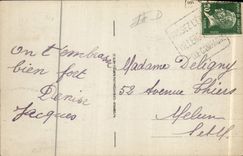 On t'embrasse
bien fort
Denise
Jacques
Madame Deligny
52 Avenue Thiers
Melun
S et M